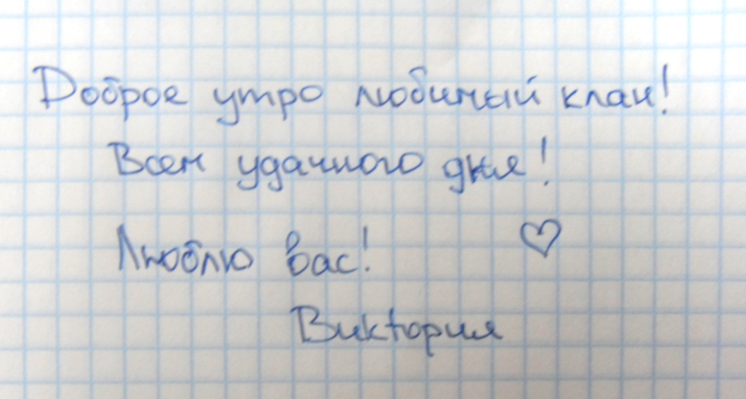 Доброе утро любимый клан!
Всем удачного дня!
Люблю вас! ♡
Виктория